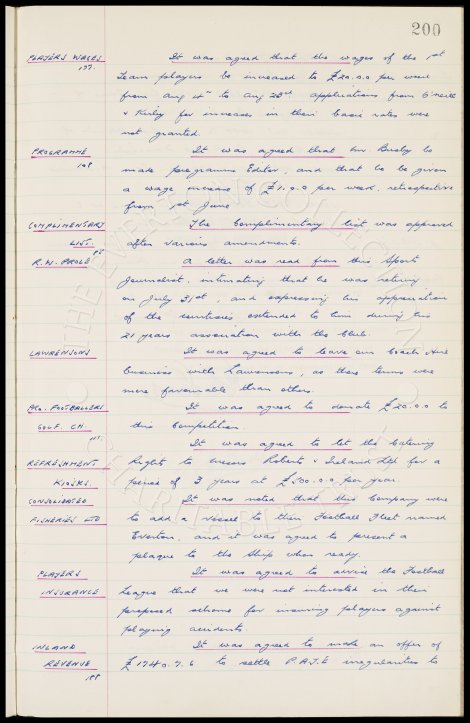 200
PLAYERS WAGES It was agreed that the wages of the 1st
197. team players be increased to £20.0.0 per week
from Aug 4th to Aug 28th applications from O'Neill
& Kirby for increases in their basic rates were
not granted.
PROGRAMME It was agreed that Mr Busby be
198 made programme Editor, and that he be given
a wage increase of £1.0.0 per week, retrospective
from 1st June
COMPLIMENTARY The Complimentary list was approved
LIST. after various amendments.
R. W. PROLE A letter was read from this Sport
Journalist, intimating that he was retiring
on July 31st, and expressing his appreciation
of the courtesies extended to him during his
21 years association with the Club.
LAWRENSONS It was agreed to leave our Coach Hire
business with Lawrensons, as their terms were
more favourable than others.
PRO. FOOTBALLERS It was agreed to donate £20.0.0 to
GOLF. CH. this Competition.
It was agreed to let the Catering
REFRESHMENT Rights to Messrs Roberts & Ireland Ltd for a
KIOSKS. period of 3 years at per year
CONSOLIDATED It was noted that this Company were
FISHERIES LTD to add a vessel to their Football Fleet named
Everton, and it was agreed to present a
plaque to the Ship when ready.
PLAYERS It was agreed to advise the Football
INSURANCE League that we were not interested in their
proposed scheme for insuring players against
playing accidents
INLAND It was agreed to make an offer of
REVENUE £1740.7.6 to settle P.A.Y.E irregularities to
THE EVERTON COLLECTION
CHARITABLE